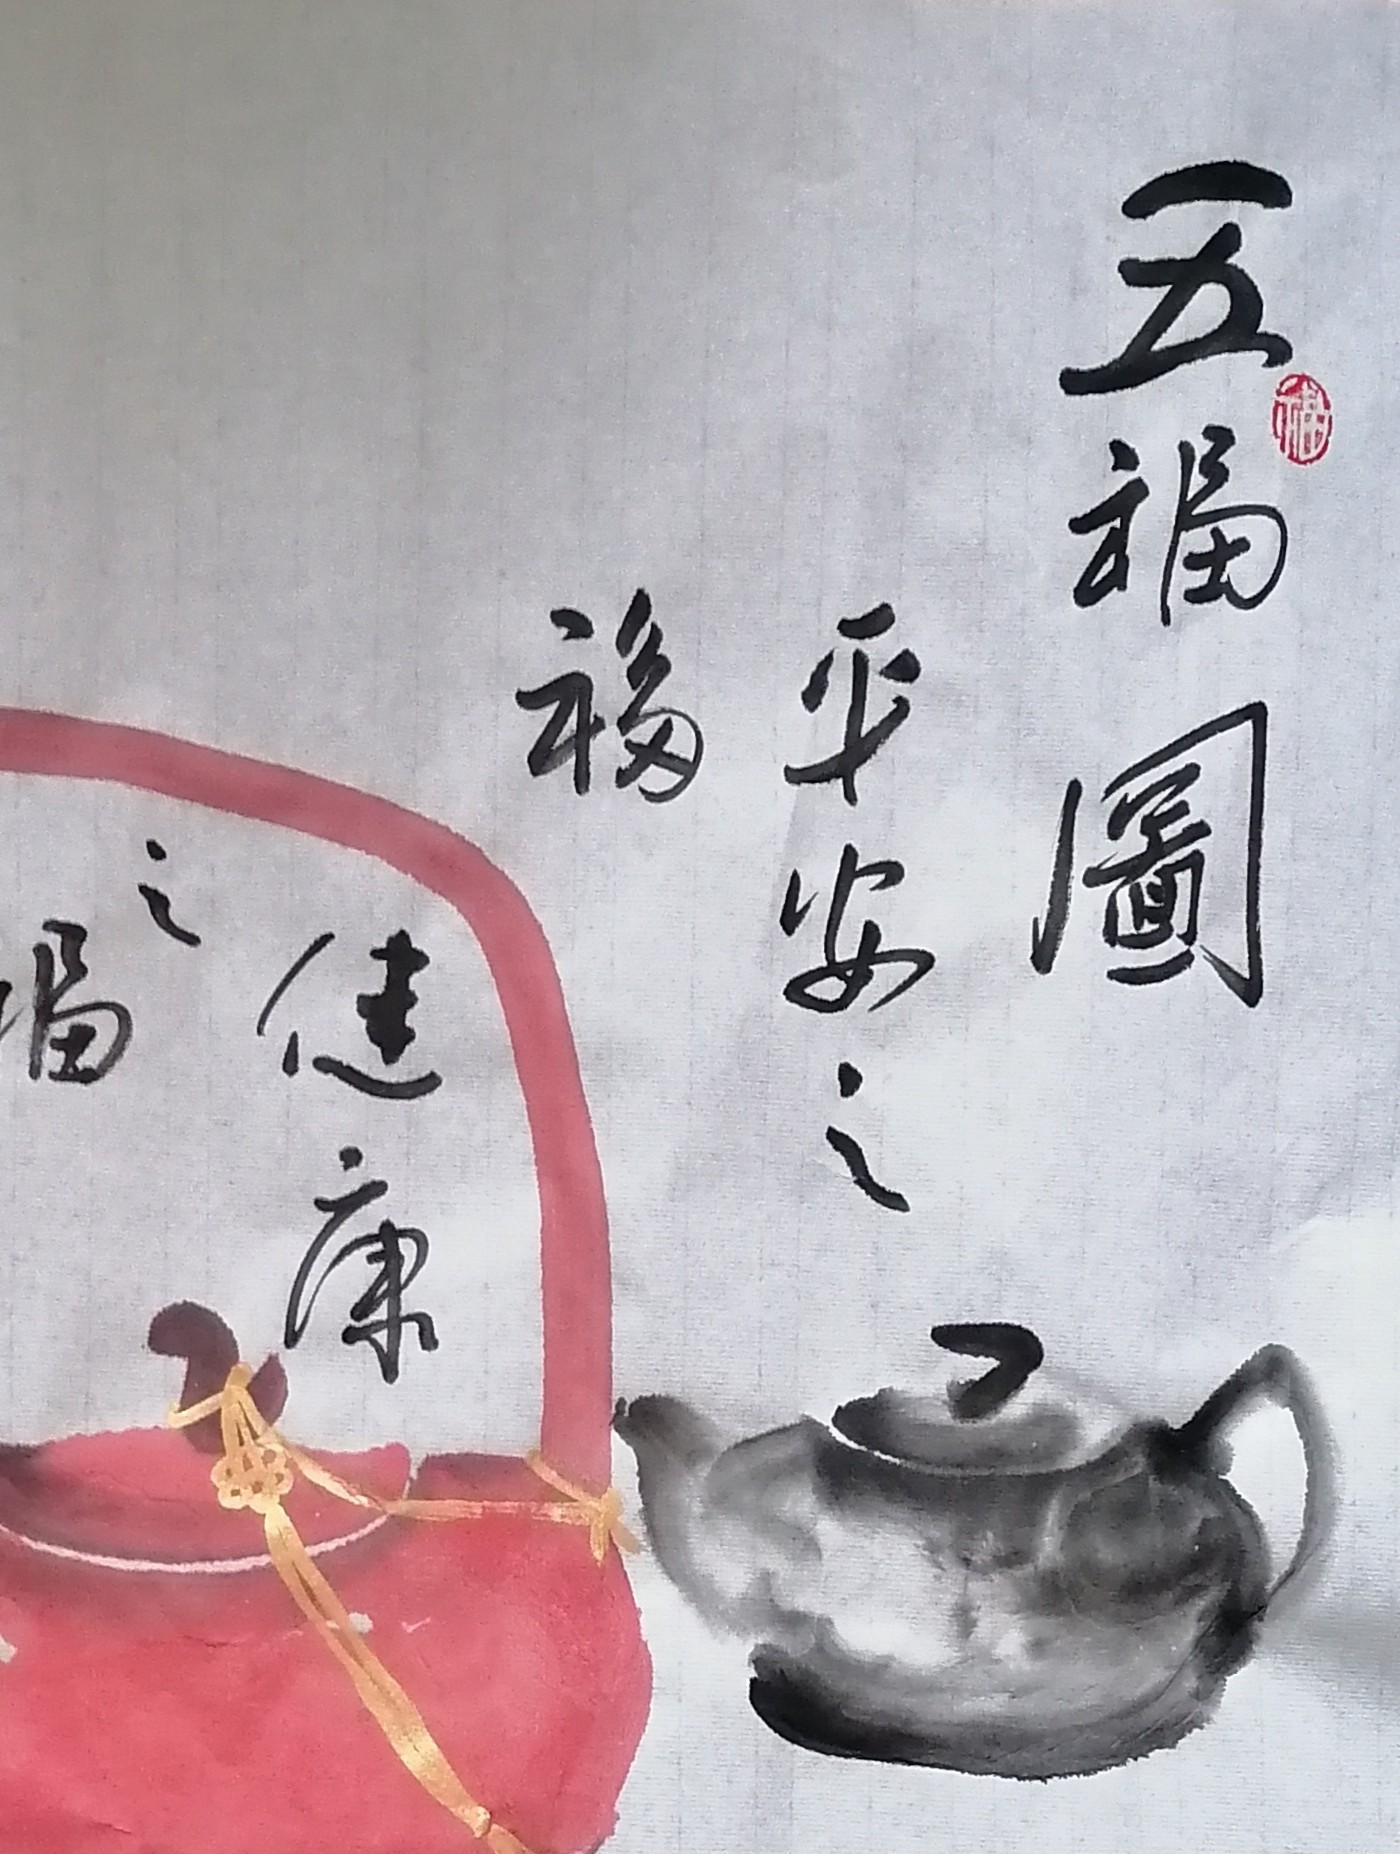 五福圖
福
平安之
福
健康
之
福